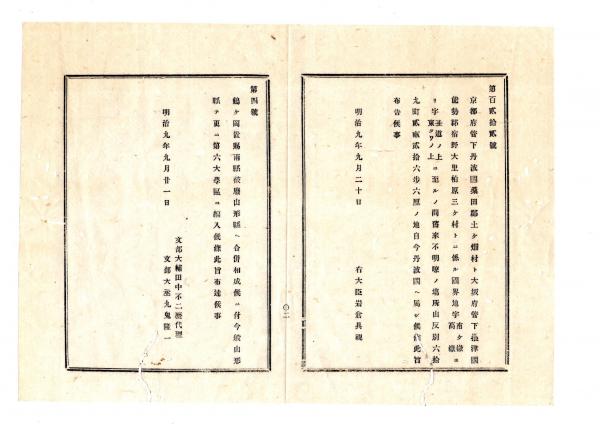 第百貳拾貳號
京都府管下丹波國桑田郡土ケ畑村ト大坂府管下攝津國
能勢郡宿野大里柏原三ケ村トニ係ル國界地字
リ字 王道ノ上 東クワノ上 ニ至ルノ間舊來不明瞭ノ場所山反別六拾
九町貳畝貳拾六歩六厘ノ地自今丹波國ヘ屬シ候條此旨
布告候事
明治九年九月二十日
右大臣岩倉具視
〇二
第四號
鶴ケ岡置賜兩縣被廢山形縣ヘ合併相成候ニ付今般山形
縣ヲ更ニ第六大學區ニ編入候條此旨布達候事
明治九年九月廿一日
文部大輔田中不二麿代理
文部大丞九鬼隆一